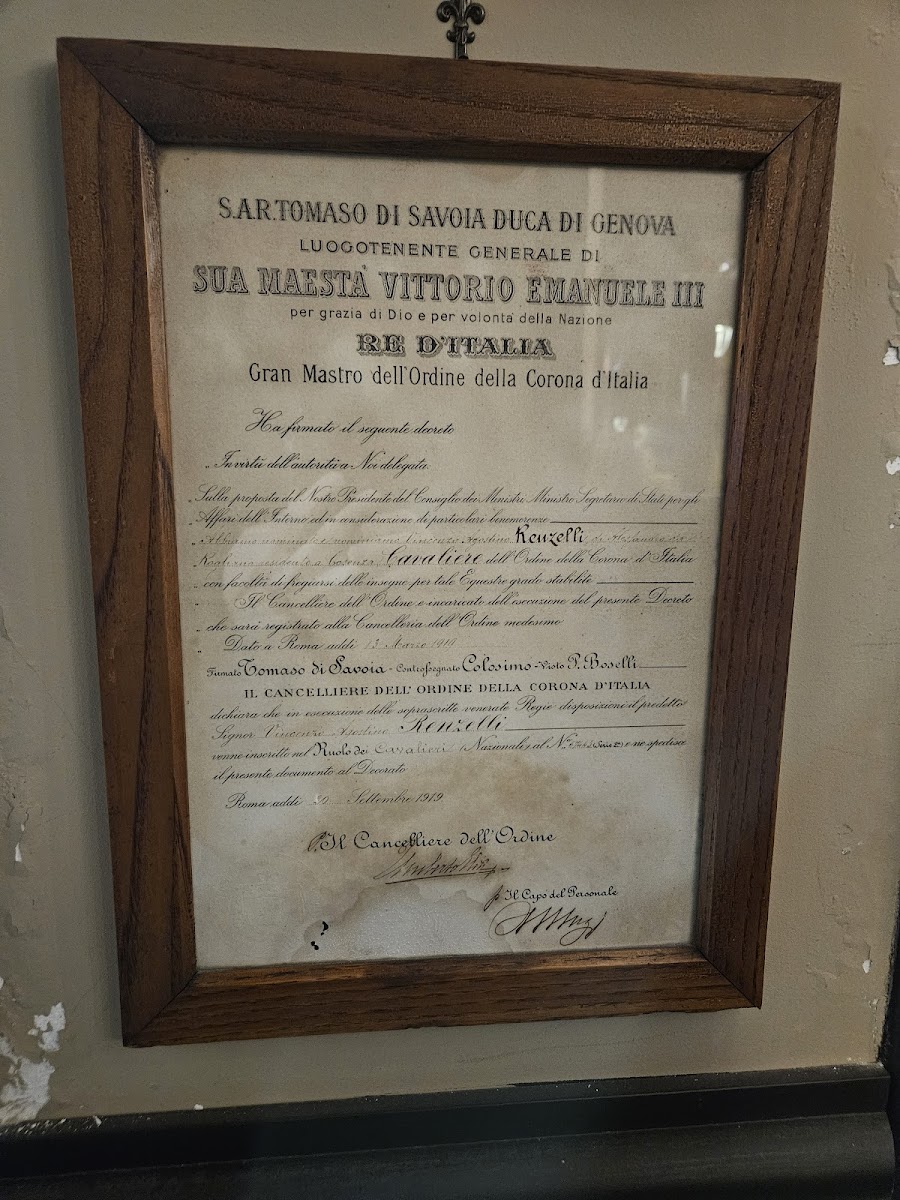 S.A.R. TOMASO DI SAVOIA DUCA DI GENOVA
LUOGOTENENTE GENERALE DI
SUA MAESTA' VITTORIO EMANUELE III
per grazia di Dio e per volontà della Nazione
RE D'ITALIA
Gran Mastro dell'Ordine della Corona d'Italia
Ha firmato il seguente decreto
„ In virtù dell'autorità a Noi delegata
„ Sulla proposta del Nostro Presidente del Consiglio dei Ministri Ministro Segretario di Stato per gli
„ Affari dell'Interno ed in considerazione di particolari benemerenze
„ Abbiamo nominato e nominiamo Vincenzo Agostino Renzelli di Alessandro da
„ Rogliano residente a Cosenza Cavaliere dell'Ordine della Corona d'Italia
„ con facoltà di fregiarsi delle insegne per tale Equestre grado stabilite
„ Il Cancelliere dell'Ordine è incaricato dell'esecuzione del presente Decreto
„ che sarà registrato alla Cancelleria dell'Ordine medesimo
„ Dato a Roma addì 13 Marzo 1919
Firmato Tomaso di Savoia - Controssegnato Colosimo - Visto P. Boselli
IL CANCELLIERE DELL'ORDINE DELLA CORONA D'ITALIA
dichiara che in esecuzione delle soprascritte venerate Regie disposizioni il predetto
Signor Vincenzo Agostino Renzelli
venne inscritto nel Ruolo dei Cavalieri (Nazionali) al N.° (Serie 2ª) e ne spedisce
il presente documento al Decorato
Roma addì 20 Settembre 1919
p. Il Cancelliere dell'Ordine
p. Il Capo del Personale